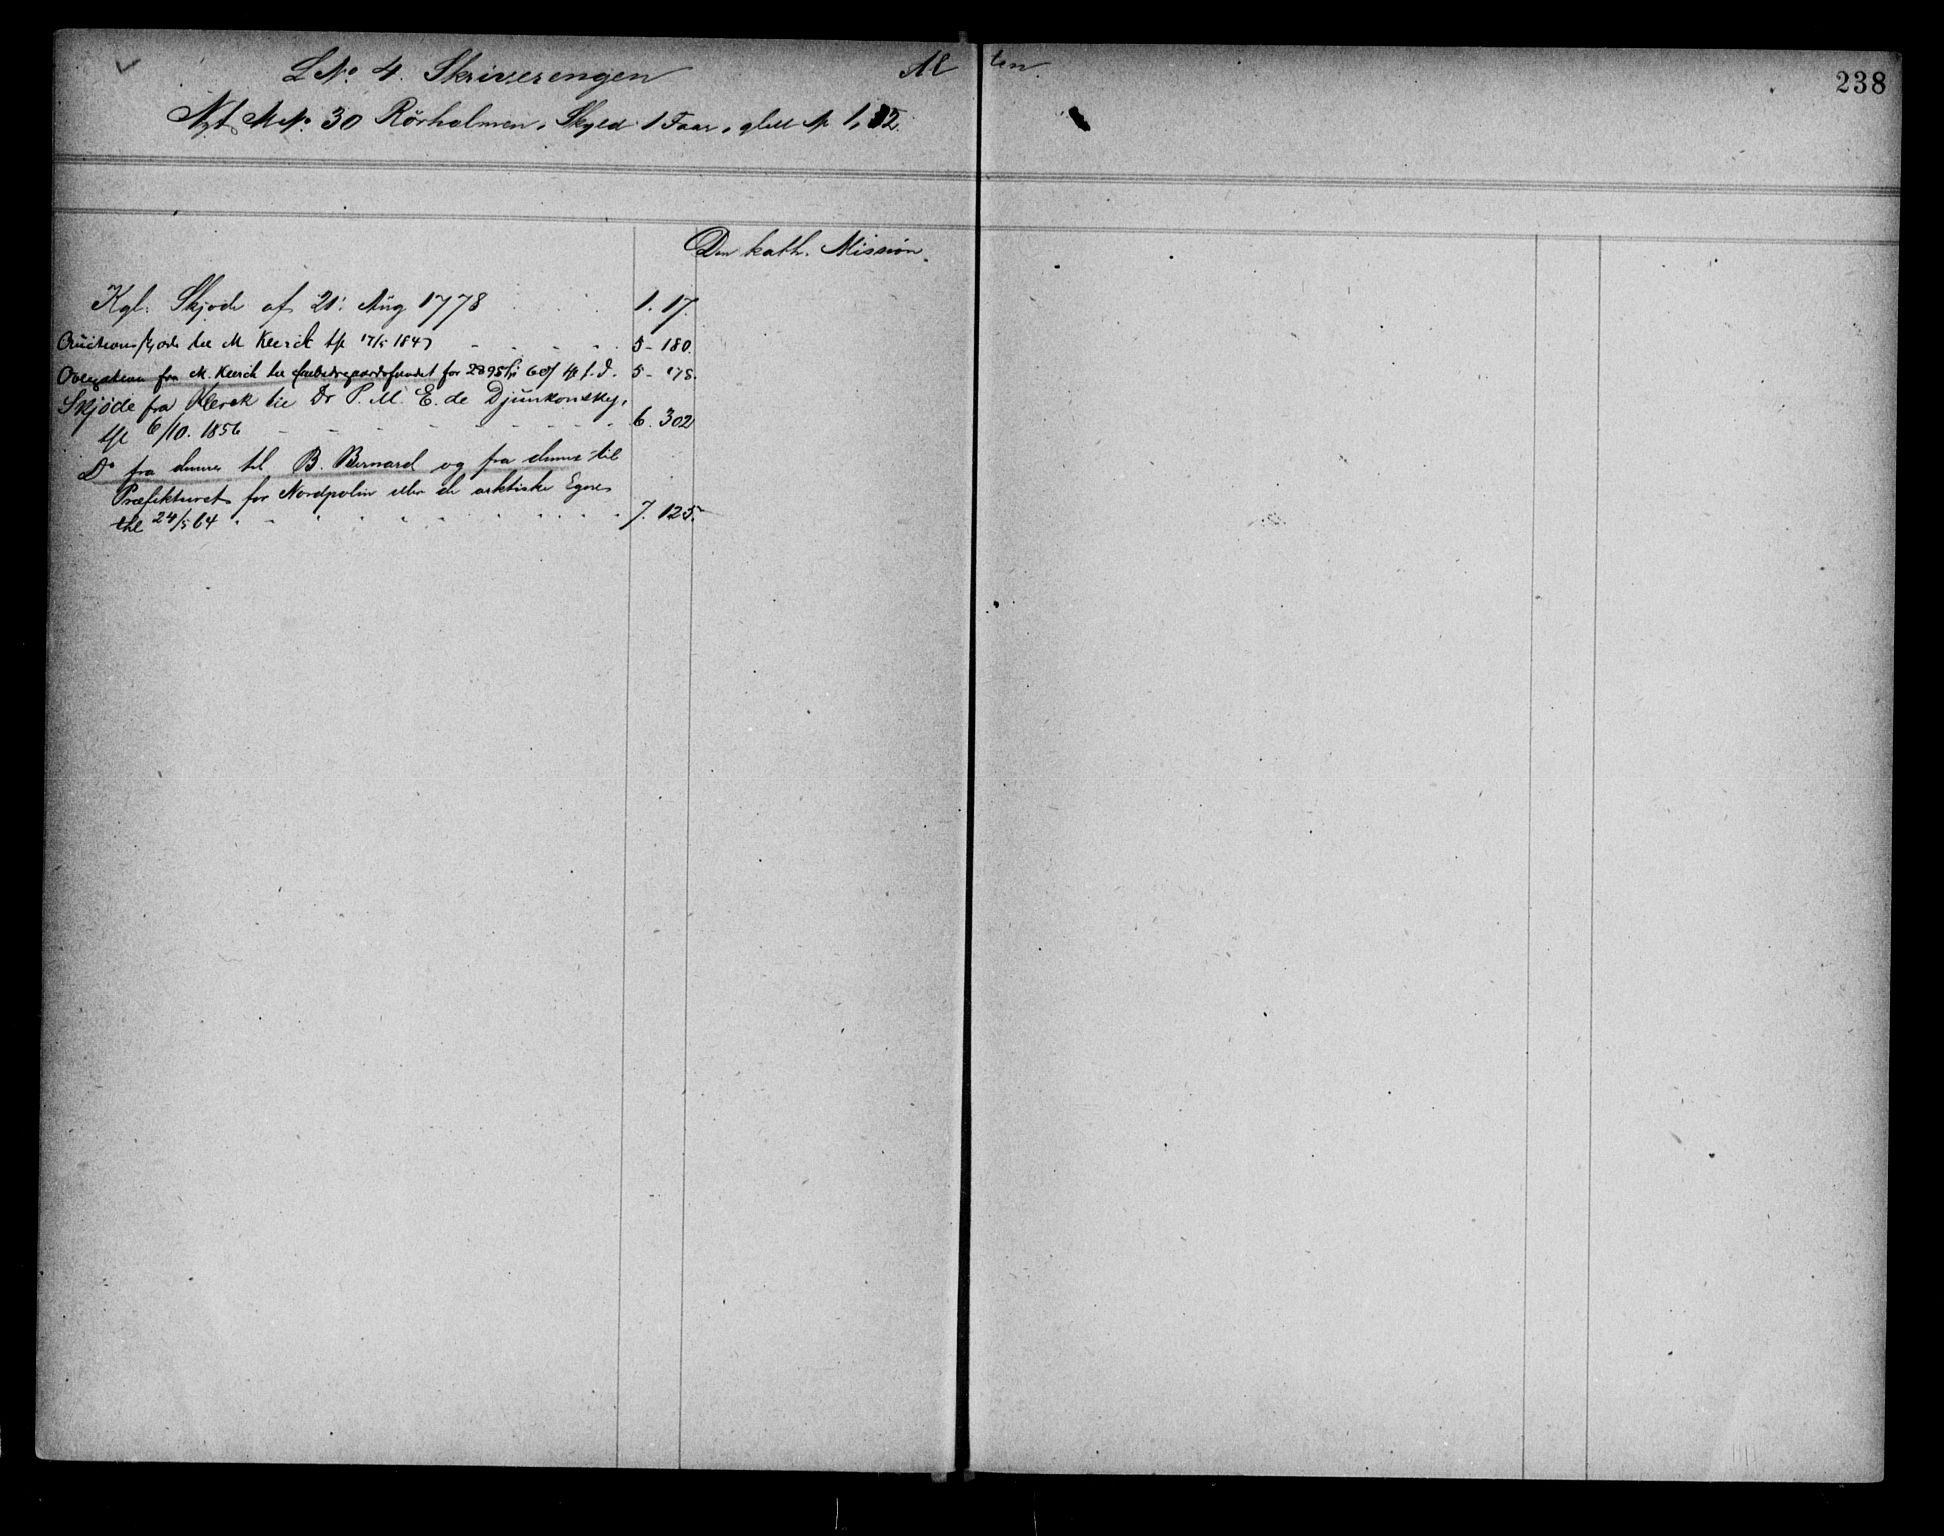 LNo. 4. Skriverengen Al ten.
238
Nyt MNo. 30 Rörholmen, Skyld 1 Faar, gll 1,
Den kath. Mission.
Kgl. Skjøde af 21. Aug 1778 1. 17.
Auctionsskjøde til M Klerck tgl 17/5 1847 5-180.
Obligation fra M. Klerck til for 2895 60 tgl s. d. 5-178.
Skjøde fra Klerck til Dr P. M. E. de Djunkowsky,
tgl 6/10. 1856 6. 302
Do fra denne til B. Bernard og fra denne til
Præfekturet for Nordpolen eller de arktiske Egne
thl 24/5 64 7. 125.